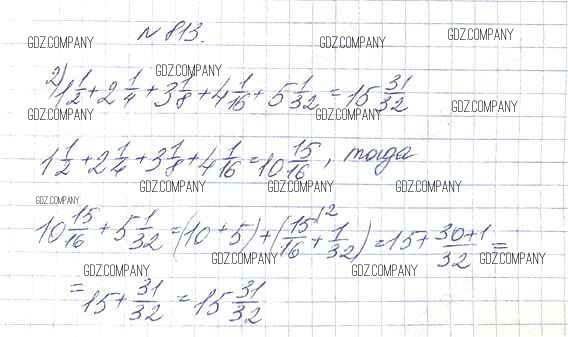 № 813.
GDZ.COMPANY GDZ.COMPANY GDZ.COMPANY
GDZ.COMPANY
2) 1 1/2 + 2 1/4 + 3 1/8 + 4 1/16 + 5 1/32 = 15 31/32
GDZ.COMPANY GDZ.COMPANY GDZ.COMPANY
1 1/2 + 2 1/4 + 3 1/8 + 4 1/16 = 10 15/16, тогда
GDZ.COMPANY GDZ.COMPANY GDZ.COMPANY
GDZ.COMPANY
10 15/16 + 5 1/32 = (10 + 5) + (15/16 |2 + 1/32) = 15 + 30+1/32 =
GDZ.COMPANY GDZ.COMPANY GDZ.COMPANY
GDZ.COMPANY GDZ.COMPANY
= 15 + 31/32 = 15 31/32